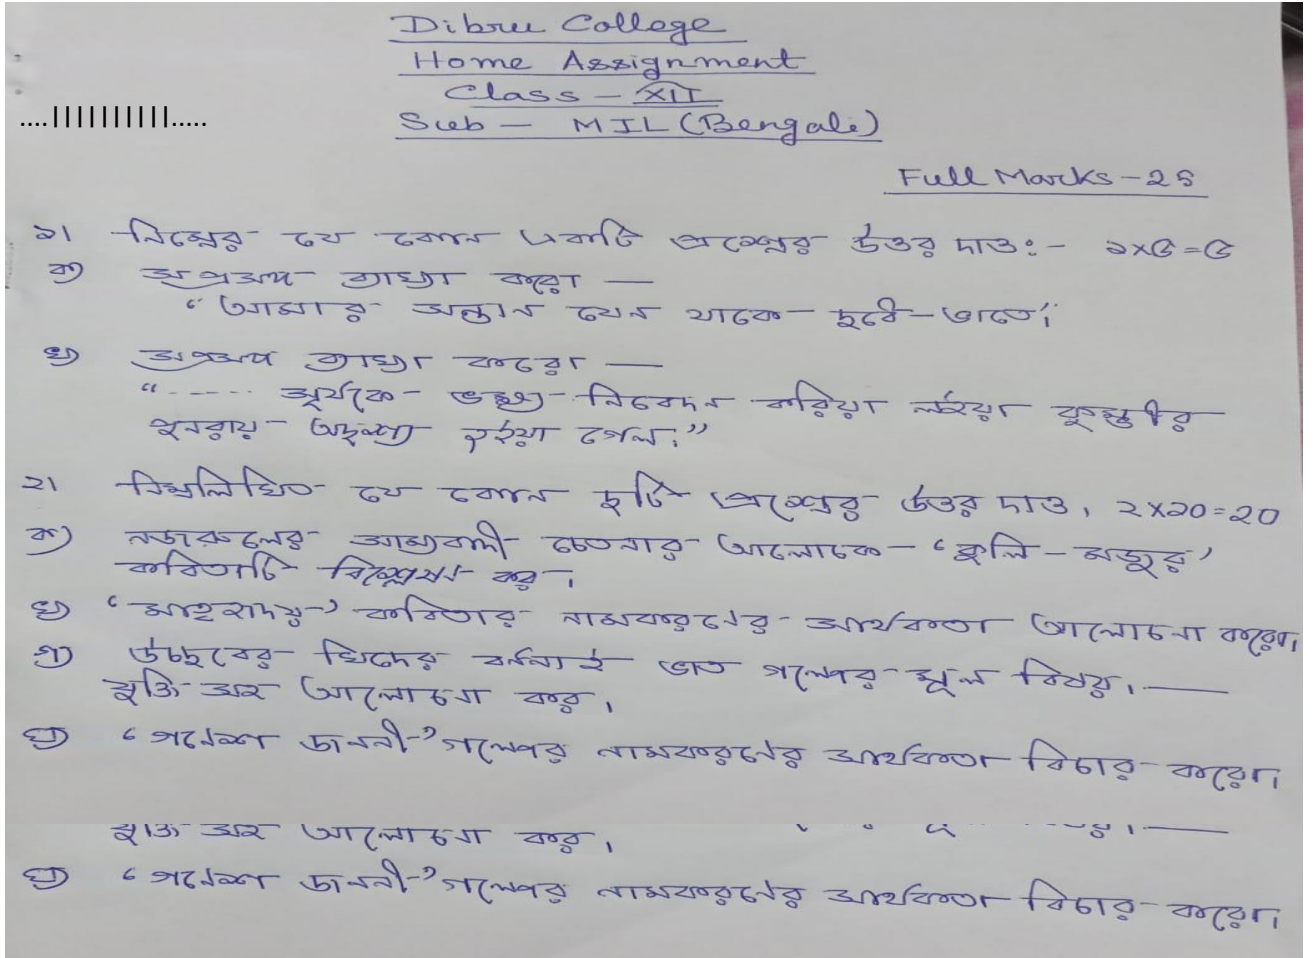 Dibru College
Home Assignment
Class - XII
....||||||||||.....
Sub - MIL (Bengali)
Full Marks - 25
১। নিম্নের যে কোন একটি প্রশ্নের উত্তর দাও:- ১x৫=৫
ক) সপ্রসঙ্গ ব্যাখ্যা করো —
"আমার সন্তান যেন থাকে দুধে-ভাতে।"
খ) সপ্রসঙ্গ ব্যাখ্যা করো —
"...... সূর্যকে নিবেদন করিয়া লইয়া কুম্ভীর
পুনরায় অদৃশ্য হইয়া গেল।"
২। নিম্নলিখিত যে কোন দুটি প্রশ্নের উত্তর দাও, ২x১০=২০
ক) নজরুলের সাম্যবাদী চেতনার আলোকে 'কুলি-মজুর'
কবিতাটি বিশ্লেষণ কর।
খ) কবিতার নামকরণের সার্থকতা আলোচনা করো।
গ) উচ্ছবের খিদের বর্ণনাই ভাত গল্পের মূল বিষয়। —
যুক্তি সহ আলোচনা কর।
ঘ) 'গণেশ জননী' গল্পের নামকরণের সার্থকতা বিচার করো।
যুক্তি সহ আলোচনা কর।
ঘ) 'গণেশ জননী' গল্পের নামকরণের সার্থকতা বিচার করো।